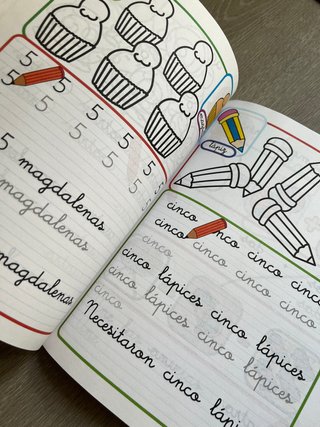 5 5 5 5 5
5 5 5 5 5
5 magdalenas
magdalenas
magdalenas
lápiz
cinco cinco cinco cinco
cinco cinco cinco cinco
cinco
cinco lápices cinco lápices
cinco lápices cinco lápices
cinco
Necesitaron cinco